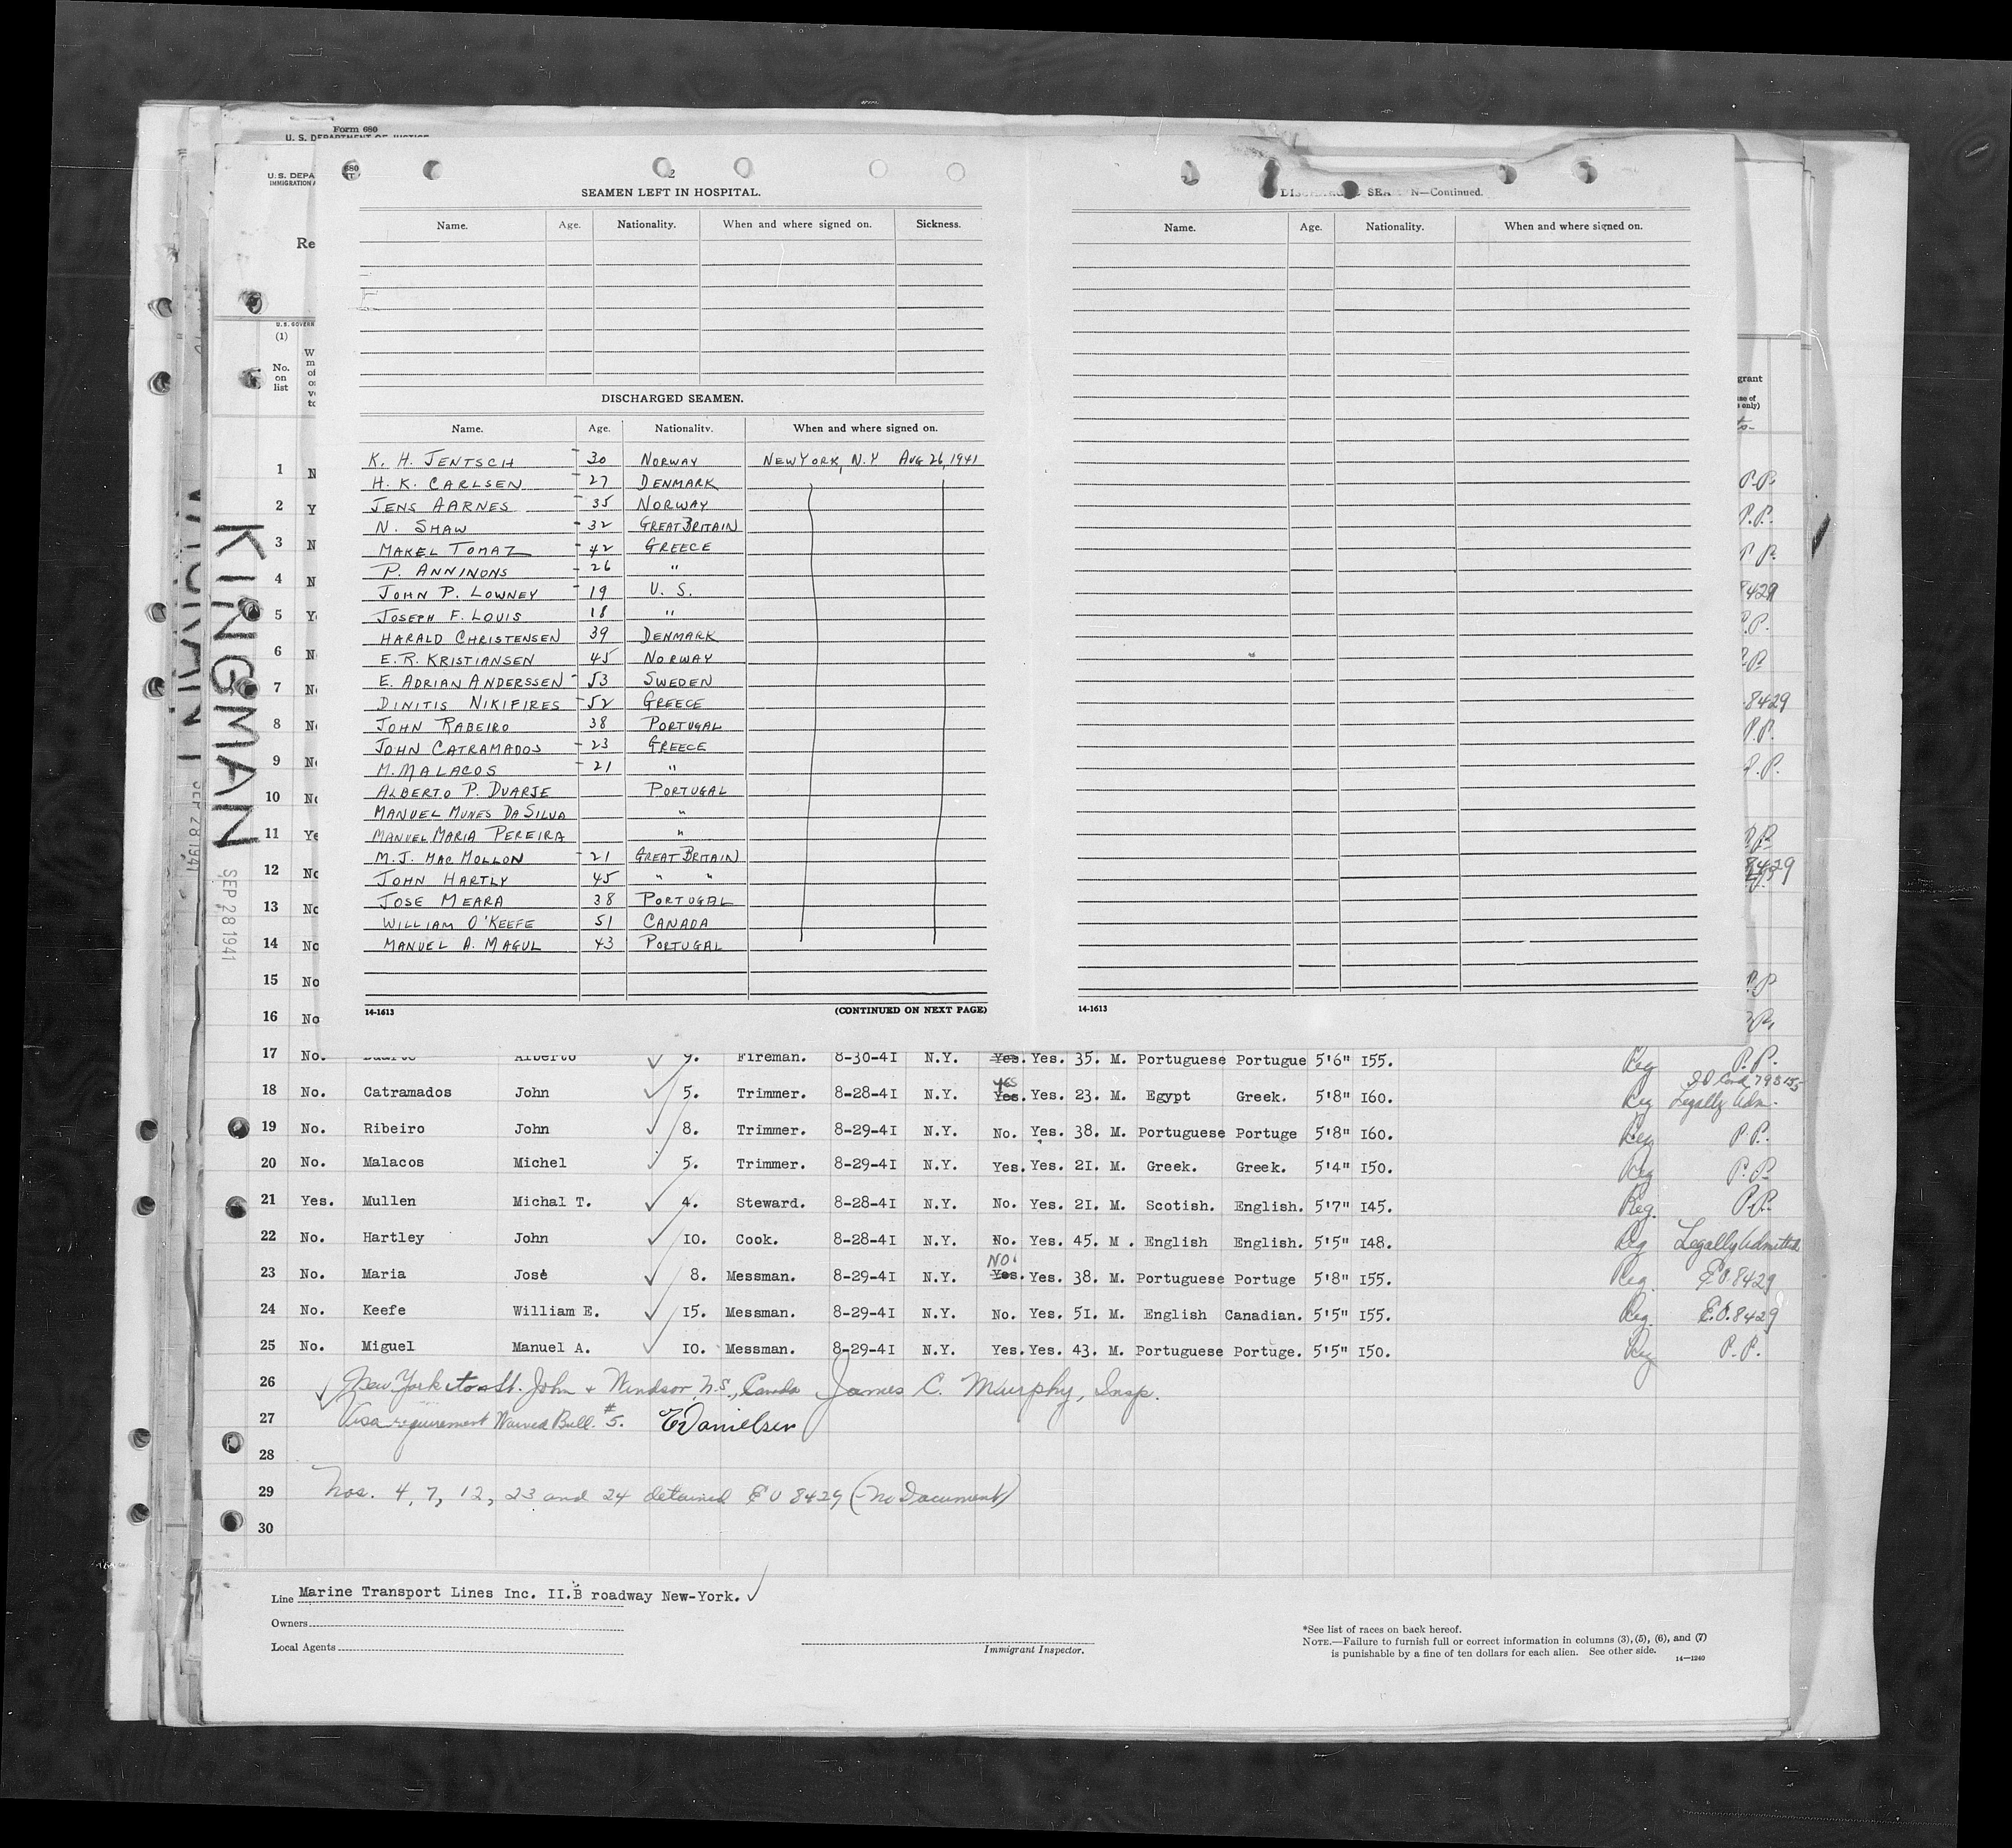 Form 680
U. S. DEPARTMENT OF JUSTICE
U. S. DEPA
IMMIGRATION A
Re
U. S. GOVERN
(1)
No.
on
list
2
SEAMEN LEFT IN HOSPITAL.
Name. Age. Nationality. When and where signed on. Sickness.
DISCHARGED SEAMEN.
Name. Age. Nationality. When and where signed on.
K. H. JENTSCH 30 NORWAY NEW YORK, N.Y AUG 26, 1941
H. K. CARLSEN 27 DENMARK
JENS AARNES 35 NORWAY
N. SHAW 32 GREAT BRITAIN
MAKEL TOMAZ 42 GREECE
P. ANNINONS 26 "
JOHN P. LOWNEY 19 U. S.
JOSEPH F. LOUIS 18 "
HARALD CHRISTENSEN 39 DENMARK
E. R. KRISTIANSEN 45 NORWAY
E. ADRIAN ANDERSSEN 53 SWEDEN
DINITIS NIKIFIRES 52 GREECE
JOHN RABEIRO 38 PORTUGAL
JOHN CATRAMADOS 23 GREECE
M. MALACOS 21 "
ALBERTO P. DUARJE PORTUGAL
MANUEL MUNES DA SILVA "
MANUEL MARIA PEREIRA "
M. J. MAC MOLLON 21 GREAT BRITAIN
JOHN HARTLY 45 " "
JOSE MEARA 38 PORTUGAL
WILLIAM O'KEEFE 51 CANADA
MANUEL A. MAGUL 43 PORTUGAL
14-1613 (CONTINUED ON NEXT PAGE)
DISCHARGED SEAMEN—Continued.
Name. Age. Nationality. When and where signed on.
14-1613
KINGMAN
SEP 28 1941
SEP 28 1941
1 N
2 Y
3 N
4 N
5 Y
6 N
7 N
8 N
9 N
10 No
11 Ye
12 No
13 No
14 No
15 No
16 No
17 No. Duarte Alberto 9. Fireman. 8-30-41 N.Y. Yes. Yes. 35. M. Portuguese Portugue 5'6" 155. Reg P.P.
18 No. Catramados John 5. Trimmer. 8-28-41 N.Y. yes Yes. Yes. 23. M. Egypt Greek. 5'8" 160. Reg Legally Adm.
19 No. Ribeiro John 8. Trimmer. 8-29-41 N.Y. No. Yes. 38. M. Portuguese Portuge 5'8" 160. Reg P.P.
20 No. Malacos Michel 5. Trimmer. 8-29-41 N.Y. Yes. Yes. 21. M. Greek. Greek. 5'4" 150. Reg P.P.
21 Yes. Mullen Michal T. 4. Steward. 8-28-41 N.Y. No. Yes. 21. M. Scotish. English. 5'7" 145. Reg. P.P.
22 No. Hartley John 10. Cook. 8-28-41 N.Y. No. Yes. 45. M . English English. 5'5" 148. Reg Legally Admitted
23 No. Maria José 8. Messman. 8-29-41 N.Y. NO. Yes. Yes. 38. M. Portuguese Portuge 5'8" 155. Reg. E.O. 8429
24 No. Keefe William E. 15. Messman. 8-29-41 N.Y. No. Yes. 51. M. English Canadian. 5'5" 155. Reg. E.O. 8429
25 No. Miguel Manuel A. 10. Messman. 8-29-41 N.Y. Yes. Yes. 43. M. Portuguese Portuge. 5'5" 150. Reg P.P.
26 New York to St. John + Windsor, N.S., Canada James C. Murphy, Insp.
27 Visa requirement Waived Bull. #5. E Danielsen
28
29 Nos. 4, 7, 12, 23 and 24 detained E O 8429 (-No Document)
30
Line Marine Transport Lines Inc. II.B roadway New-York.
Owners
Local Agents
Immigrant Inspector.
*See list of races on back hereof.
NOTE.—Failure to furnish full or correct information in columns (3), (5), (6), and (7)
is punishable by a fine of ten dollars for each alien. See other side.
14—1240